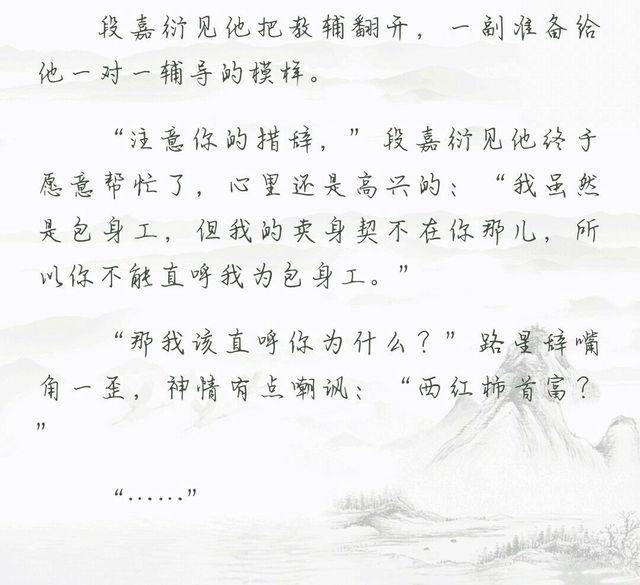 段嘉衍见他把教辅翻开，一副准备给
他一对一辅导的模样。
“注意你的措辞，”段嘉衍见他终于
愿意帮忙了，心里还是高兴的：“我虽然
是包身工，但我的卖身契不在你那儿，所
以你不能直呼我为包身工。”
“那我该直呼你为什么？”路星辞嘴
角一歪，神情有点嘲讽：“西红柿首富？
”
“……”